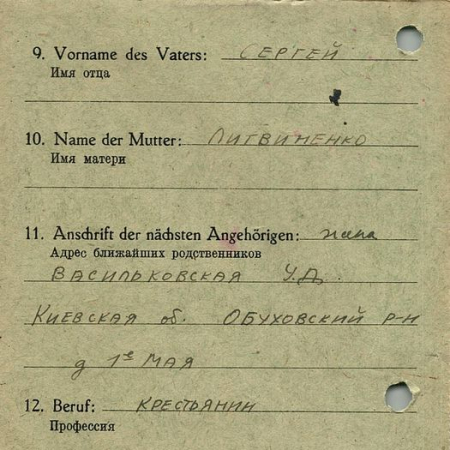 9. Vorname des Vaters: СЕРГЕЙ
Имя отца
10. Name der Mutter: ЛИТВИНЕНКО
Имя матери
11. Anschrift der nächsten Angehörigen: жена
Адрес ближайших родственников
ВАСИЛЬКОВСКАЯ У.Д.
КИЕВСКАЯ об. ОБУХОВСКИЙ Р-Н
д 1ое МАЯ
12. Beruf: КРЕСТЬЯНИН
Профессия